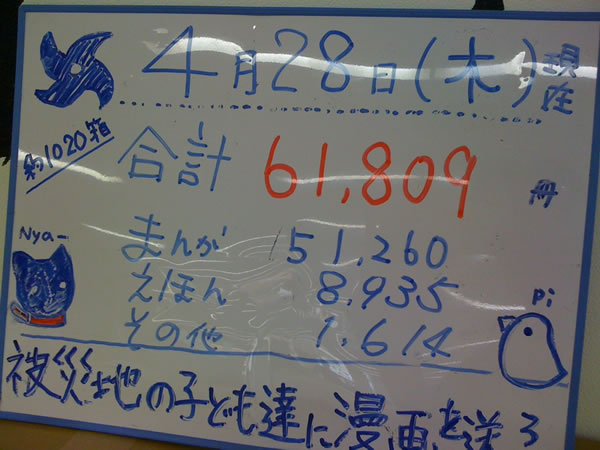 4月28日(木)現在
約1020箱
合計 61,809 冊
Nya-
まんが 51,260
えほん 8,935
pi
その他 1,614
被災地の子ども達に漫画を送ろ